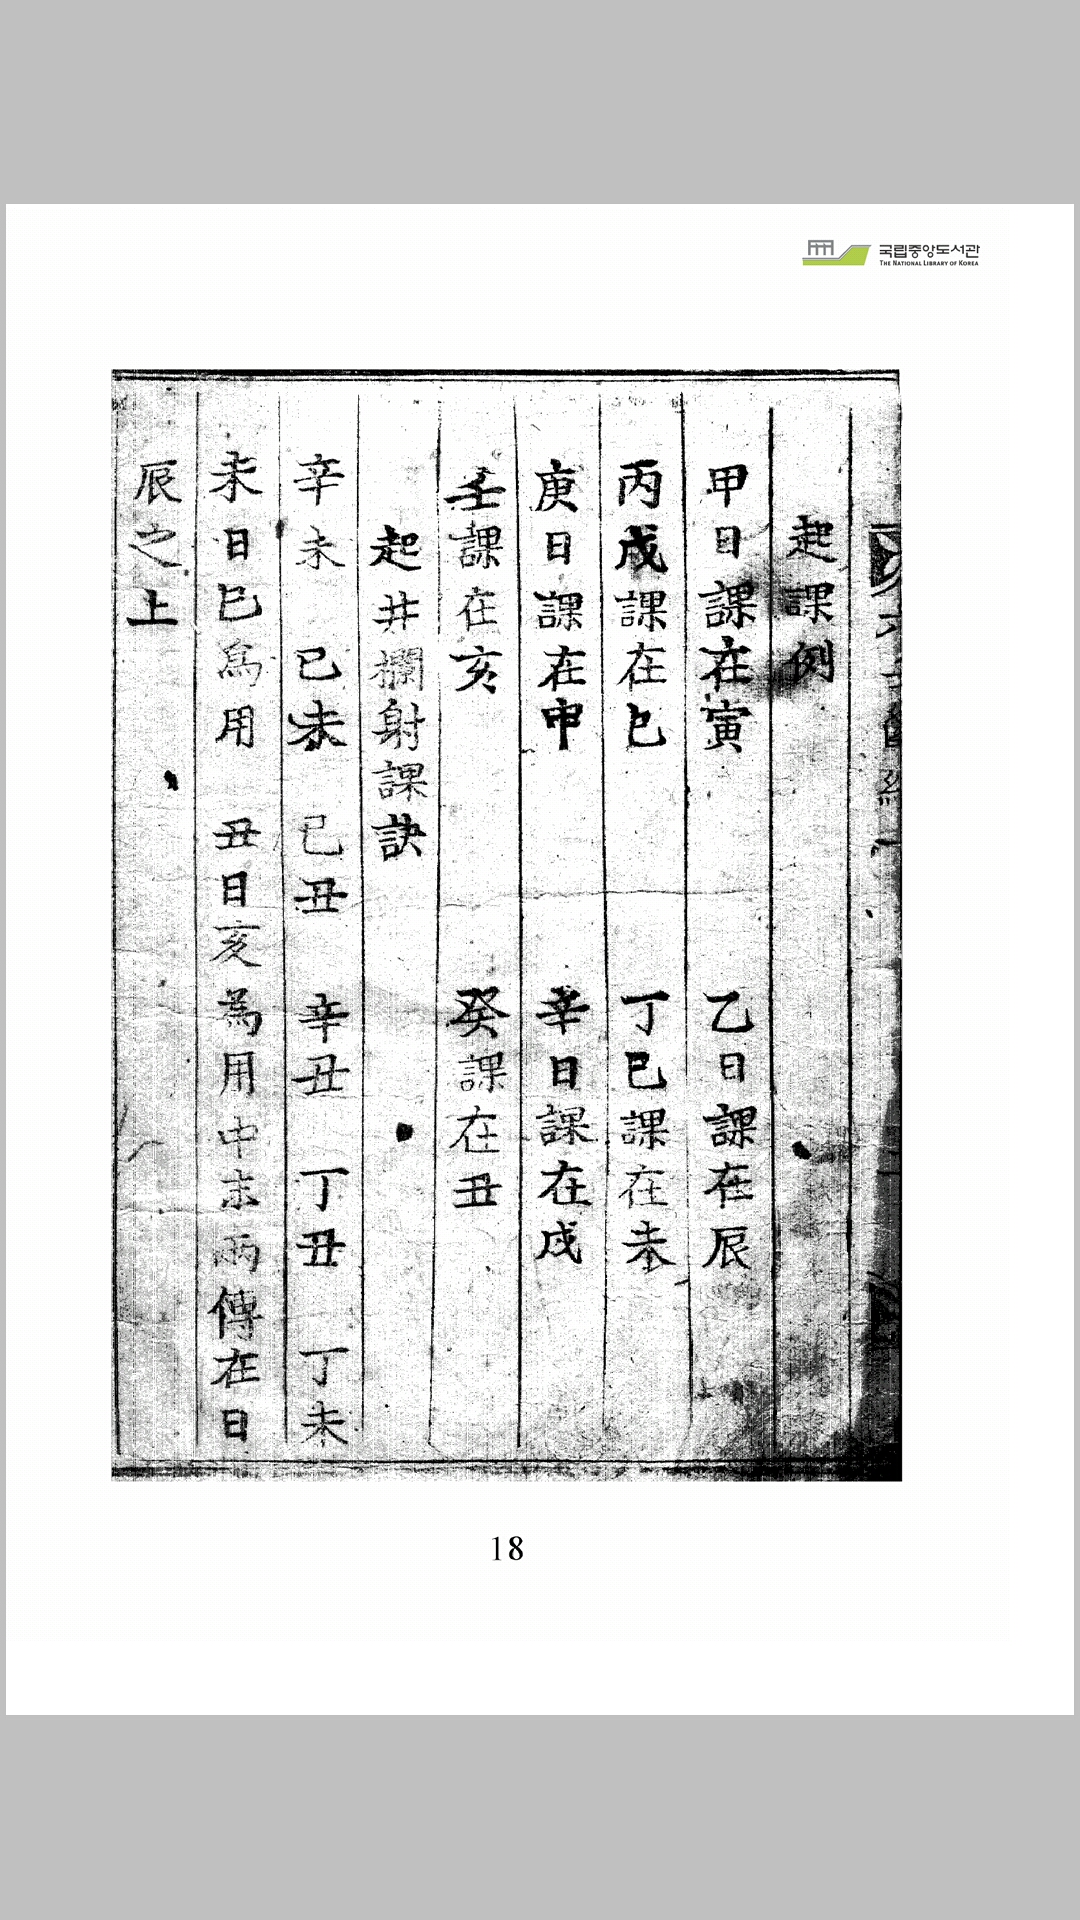 국립중앙도서관
THE NATIONAL LIBRARY OF KOREA
起課例
甲日課在寅 乙日課在辰
丙戊課在巳 丁己課在未
庚日課在申 辛日課在戌
壬課在亥 癸課在丑
起井欄射課訣
辛未 己未 己丑 辛丑 丁丑 丁未
未日巳爲用 丑日亥為用中末兩傳在日
辰之上
18